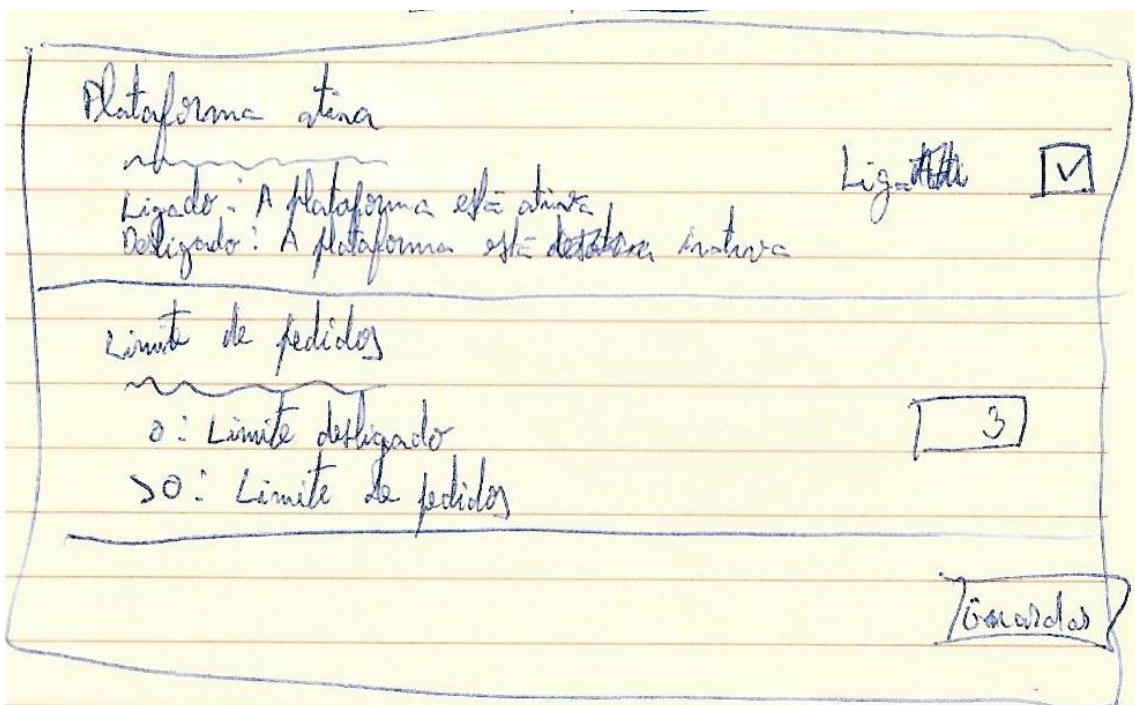 Plataforma ativa
Ligado
Ligado: A plataforma está ativa
Desligado: A plataforma está inativa
Limite de pedidos
0: Limite desligado
3
>0: Limite de pedidos
Guardar